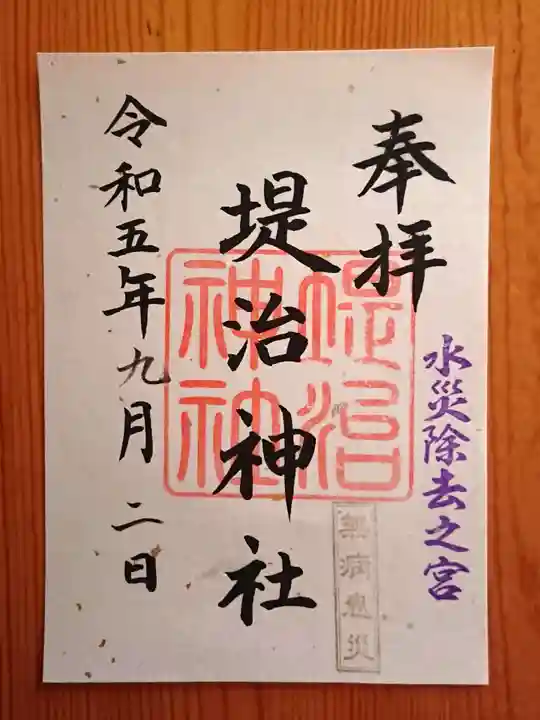 奉拝
水災除去之宮
堤治神社
堤治神社
無病息災
令和五年九月二日